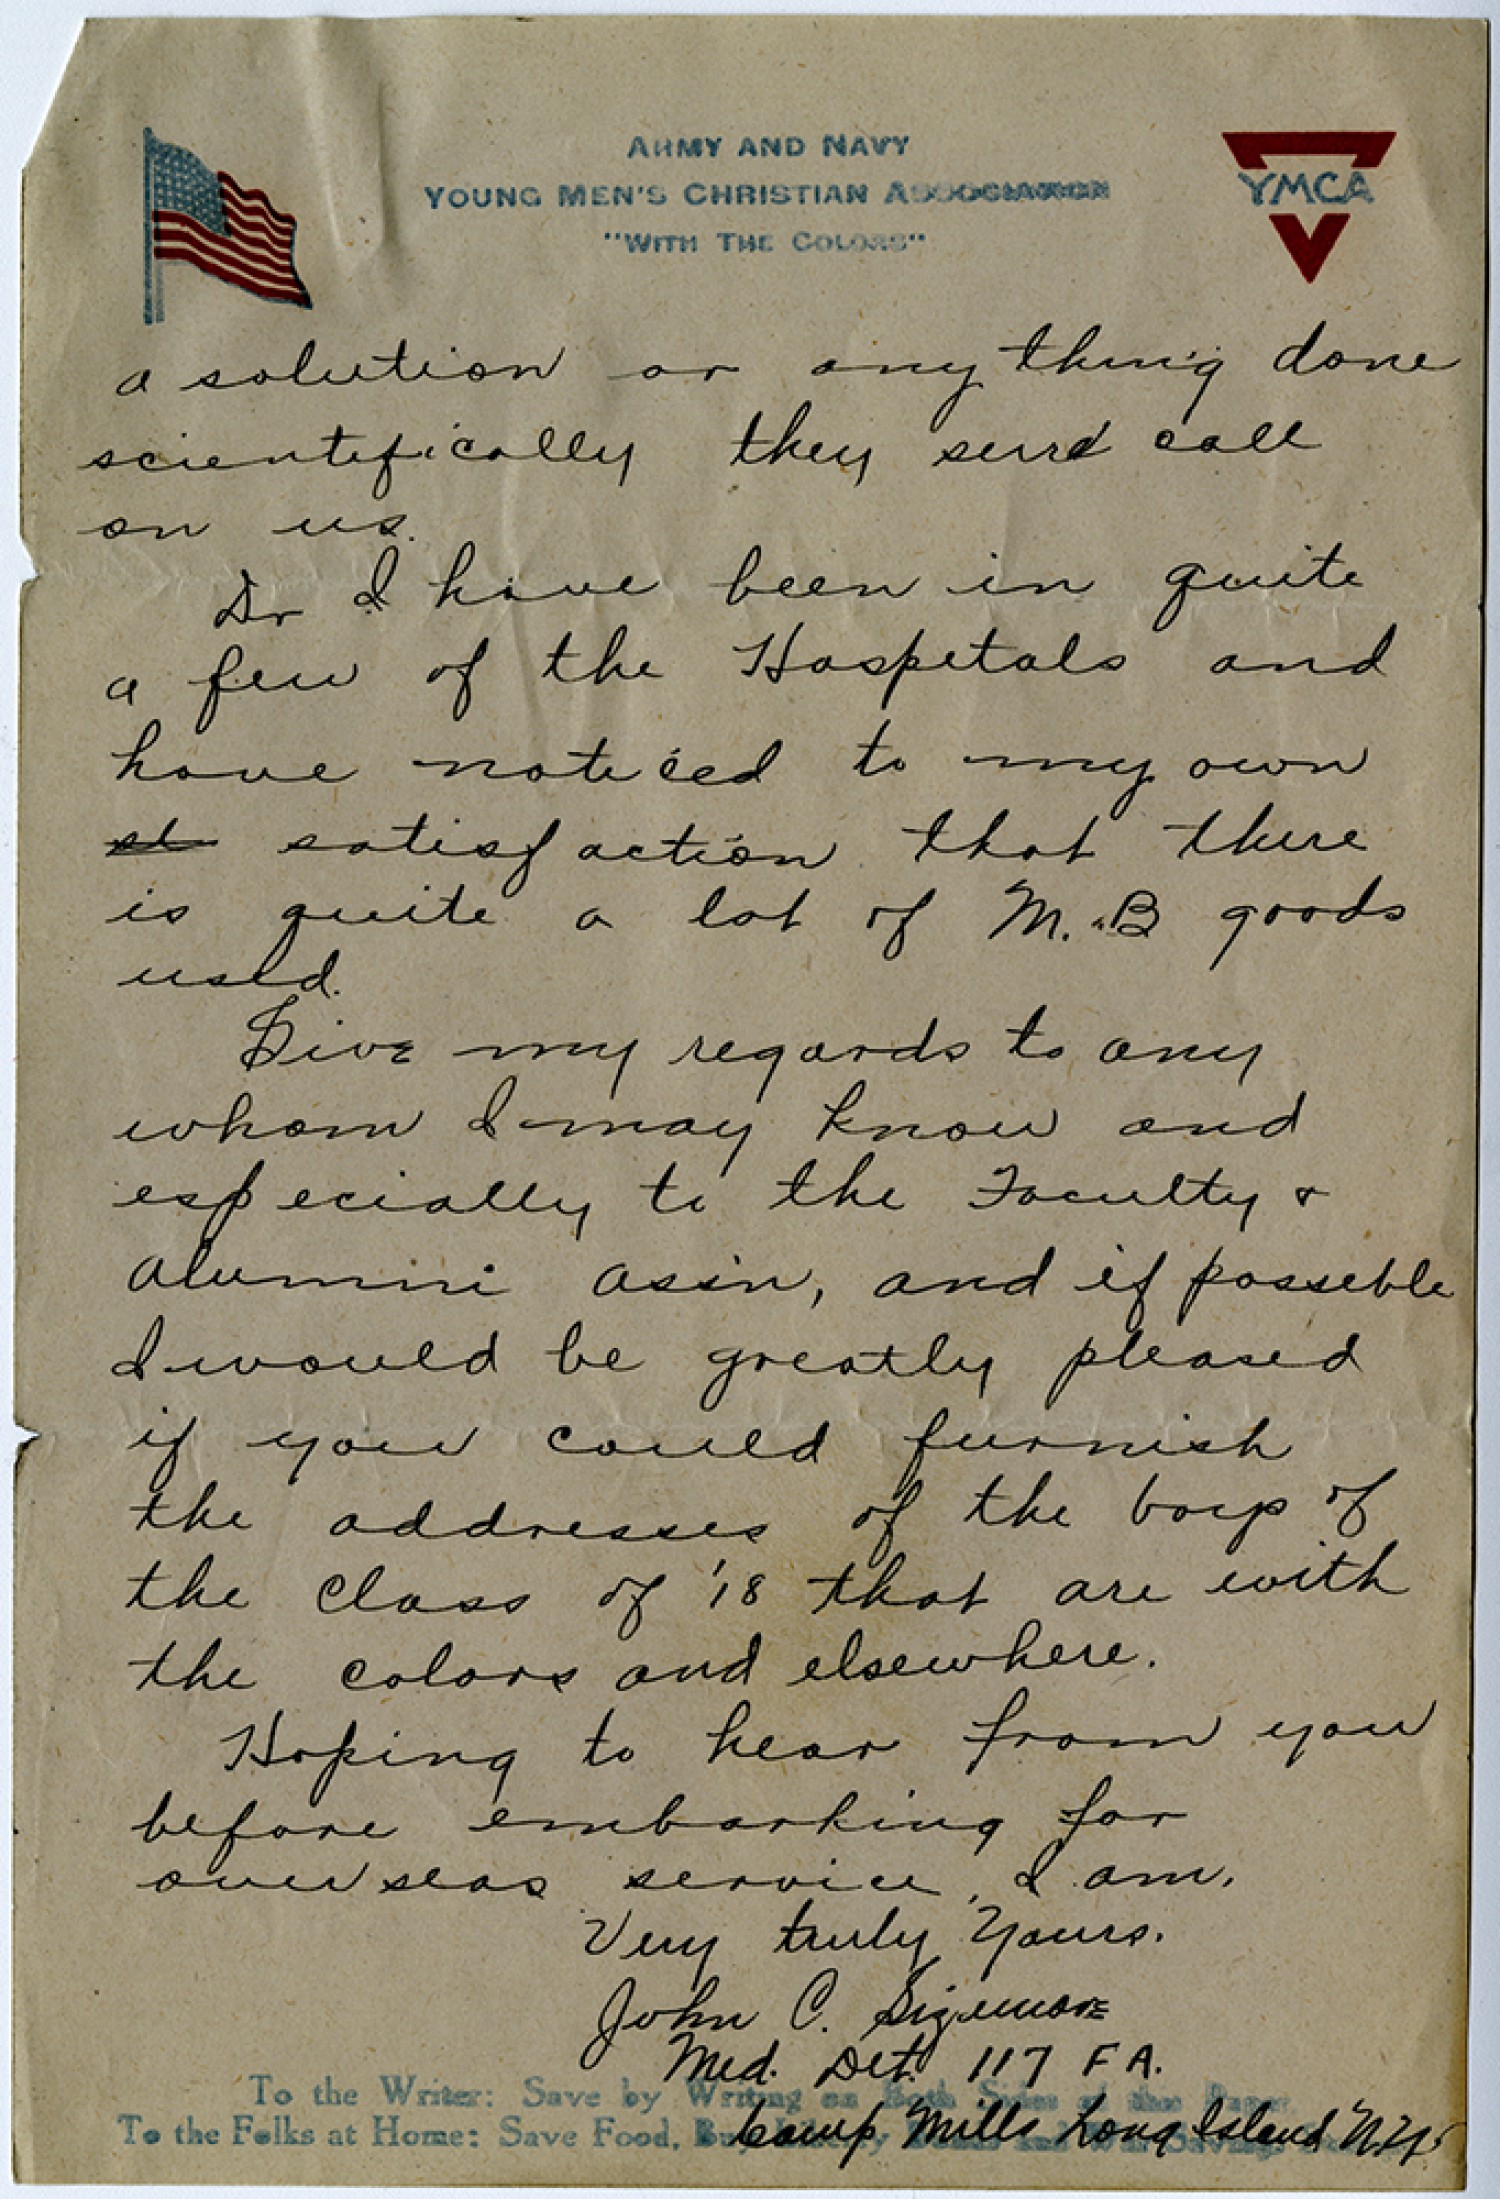 ARMY AND NAVY
YOUNG MEN'S CHRISTIAN ASSOCIATION
"WITH THE COLORS"
YMCA
a solution or any thing done
scientifically they send call
on us.
Dr I have been in quite
a few of the Hospetals and
have noticed to my own
st satisfaction that there
is quite a lot of M.B goods
used.
Give my regards to any
whom I may know and
especially to the Faculty &
alumni assn, and if posseble
I would be greatly pleased
if you could furnish
the addresses of the boys of
the class of '18 that are with
the colors and elsewhere.
Hoping to hear from you
before embarking for
overseas service, I am.
Very truly Yours.
John C. Sizemore
Med. Det. 117 F A.
To the Writer: Save by Writing on Both Sides of this Paper
Camp Mills Long Island N.Y.
To the Folks at Home: Save Food, Buy Liberty Bonds and War Savings